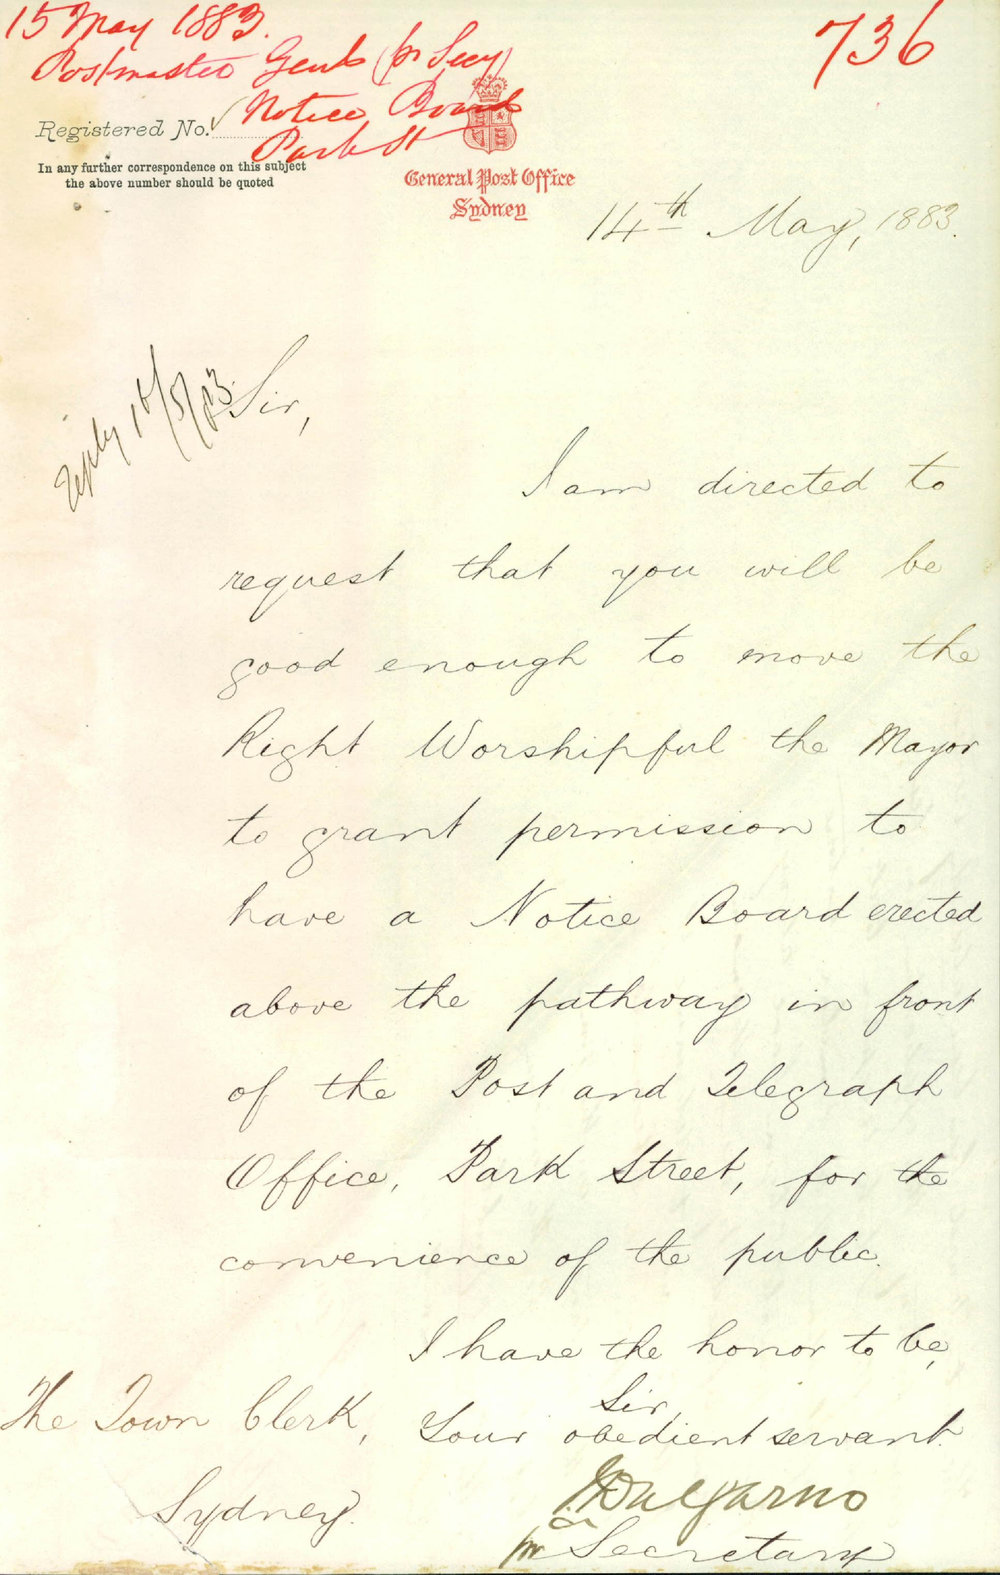 15 May 1883.
736
Postmaster Genl (pr Secy)
Notice Board
Park St
Registered No.
In any further correspondence on this subject
the above number should be quoted
General Post Office
Sydney
14th May, 1883.
reply 16/5/83
Sir,
I am directed to
request that you will be
good enough to move the
Right Worshipful the Mayor
to grant permission to
have a Notice Board erected
above the pathway in front
of the Post and Telegraph
Office, Park Street, for the
convenience of the public.
I have the honor to be,
Sir,
Your obedient servant.
Dalgarno
pr Secretary
The Town Clerk,
Sydney.